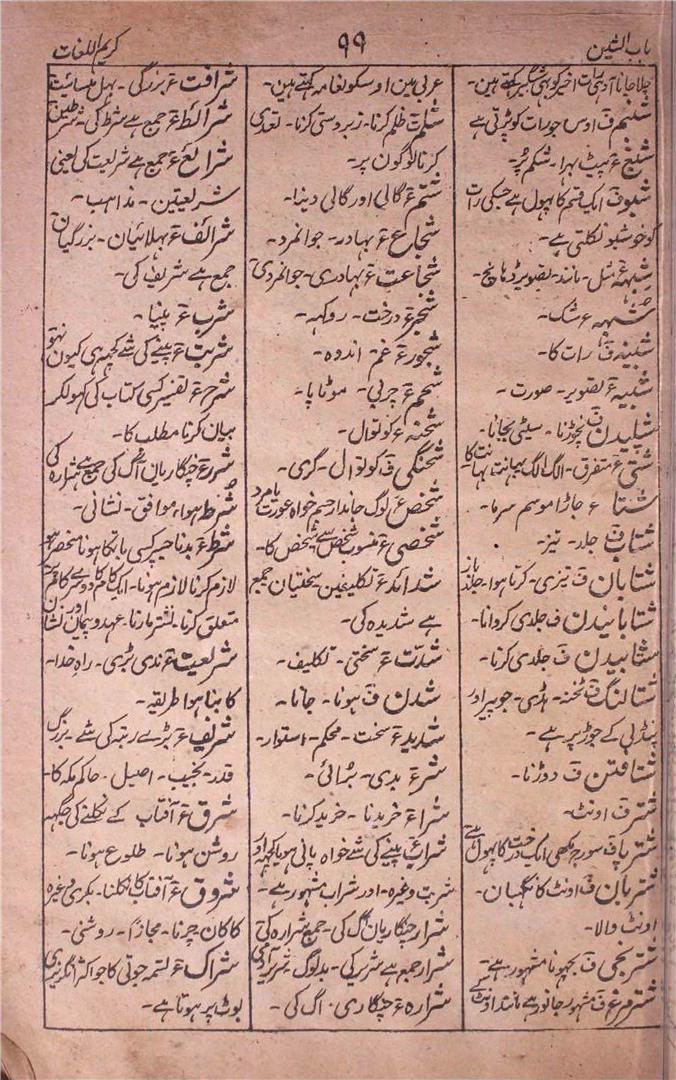 باب الشین
۹۹
کریم اللغات
چلا جانا آدہی رات اخیر کو بہی شبگیر کہتے ہین۔
شبنم ف اوس جو رات کو پڑتی ہے
شبع ع پیٹ بہرا۔ شکم پُر۔
شبو ف ایک قسم کا پہول ہے جسکی رات
کو خوشبو نکلتی ہے۔
شبہہ ع مثل۔ مانند۔ تصویر ڈہانچ۔
شبہہ ع شک۔
شبینہ ف رات کا۔
شبیہ ع تصویر۔ صورت۔
شپلیدن ف نچوڑنا۔ سیٹی بجانا۔
شتی ع متفرق۔ الگ الگ بہانت بہانت کا
شتا ع جاڑا موسم سرما۔
شتاب ف جلد۔ تیز۔
شتابان ف تیزی۔ کرتا ہوا۔ جلد باز
شتابانیدن ف جلدی کروانا۔
شتابیدن ف جلدی کرنا۔
شتالنگ ف ٹخنہ۔ ہڈی۔ جو پیر اور
پنڈلی کے جوڑ پر ہے۔
شتافتن ف دوڑنا۔
شتر ف اونٹ۔
شتر پا ف سورج مکھی ایک درخت کا پہول ہے
شتربان ف اونٹ کا نگہبان۔
اونٹ والا۔
شترنجی ف بچہونا مشہور ہے۔
شترمرغ ف مشہور جانور ہے مانند اونٹ کے
عربی مین اوسکو نعامہ کہتے ہین۔
ظلم کرنا۔ زبردستی کرنا۔ تعدی
کرنا لوگون پر۔
شتم ع گالی اور گالی دینا۔
شجاع ع بہادر۔ جوانمرد۔
شجاعت ع بہادری۔ جوانمردی
شجر ع درخت۔ روکہہ۔
شجور ع غم اندوہ۔
شحم ع چربی۔ موٹاپا۔
شحنہ ع کوتوال۔
شحنگی ف کوتوال۔ گری۔
شخص ع لوگ جاندار جسم خواہ عورت یا مرد
شخصی ع منسوب شخص سے شخص کا۔
شدائد ع تکلیفین سختیان جمع
ہے شدیدہ کی۔
شدت ع سختی۔ تکلیف۔
شدن ف ہونا۔ جانا۔
شدید ع سخت۔ محکم۔ استوار۔
شر ع بدی۔ برائی۔
شراع خریدنا۔ خرید کرنا۔
شراب ع پینے کی شے خواہ پانی ہو یا کچہہ اور
شربت وغیرہ۔ اور شراب مشہور ہے۔
شرار چنگاریان آگ کی۔ جمع شرارہ کی
شرار جمع ہے شریر کی۔ بد لوگ شریر آدمی
شرارہ ع چنگاری۔ آگ کی۔
شرافت ع بزرگی۔ بہل منسائیت
شرائط ع جمع ہے شرط کی۔ شرطین
شرائع ع جمع ہے شریعت کی یعنی
شریعتین۔ مذاہب۔
شرائف ع بہلائیان۔ بزرگیان
جمع ہے شریف کی۔
شرب ع پینا۔
شربت ع پینے کی شے کچہہ ہی کیون نہو
شرح ع تفسیر کسی کتاب کی کہولکر
بیان کرنا مطلب کا۔
شرر ع چنگاریان آگ کی جمع ہے شرارہ کی
شرط ہوا۔ موافق۔ نشانی۔
شرط ع بدنا جسپر کسی بات کا ہونا منحصر ہو
لازم کرنا لازم ہونا۔ ایک کام کا دوسرے کام
متعلق کرنا۔ نشتر مارنا۔ عہد و پیمان
شریعت ع ندی بڑی۔ راہ خدا۔
کا بنا ہوا طریقہ۔
شریف ع بڑے رتبہ کی شے۔ بزرگ
قدر۔ نجیب۔ اصیل۔ حاکم مکہ کا۔
شرق ع آفتاب کے نکلنے کی جگہہ
روشن ہونا۔ طلوع ہونا۔
شروق ع آفتاب کا نکلنا۔ بکری وغیرہ
کا کان چرنا۔ مجازاً۔ روشنی۔
شراک ع تسمہ جوتی کا جو اکثر انگریزی
بوٹ پر ہوتا ہے۔